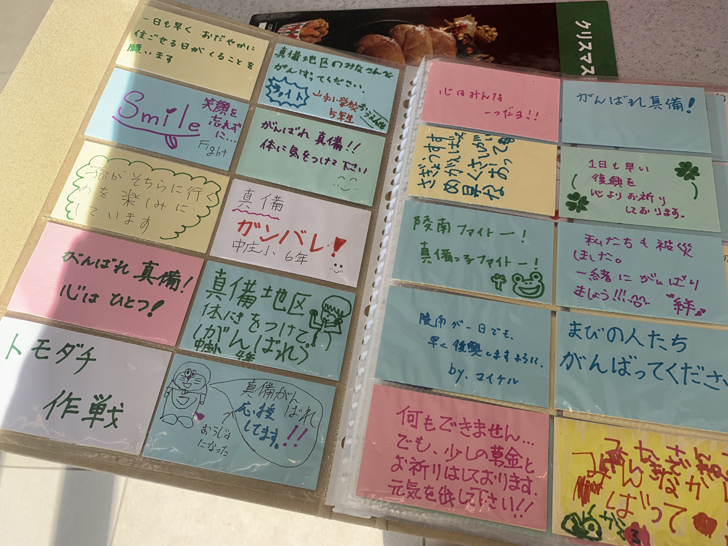 一日も早く おだやかに
住ごせる日がくることを
願います
真備地区のみなさん
がんばってください。
ファイト
山手小学校
5年生
Smile
笑顔を
忘れずに…
Fight
がんばれ 真備!!
体に気をつけて下さい
がそちらに行く
を楽しみに
しています
真備
ガンバレ!
中庄小 6年
がんばれ 真備!
心は ひとつ!
真備地区
体に気をつけて、
(がんばれ)
トモダチ
作戦
真備がん
ばれ
応援
してます。!!
クリスマス
心はみんな
一つだョ!!
がんばれ真備!
1日も早い
復興を
心よりお祈り
しております。
陵南ファイトー!
真備っ子ファイトー!
私たちも被災
しました。
一緒にがんばり
ましょう!!!
絆
が一日でも、
早く復興しますように。
by.マイケル
まびの人たち
がんばってくださ
何もできません…
でも、少しの募金と
お祈りはしております。
元気を出して下さい!!